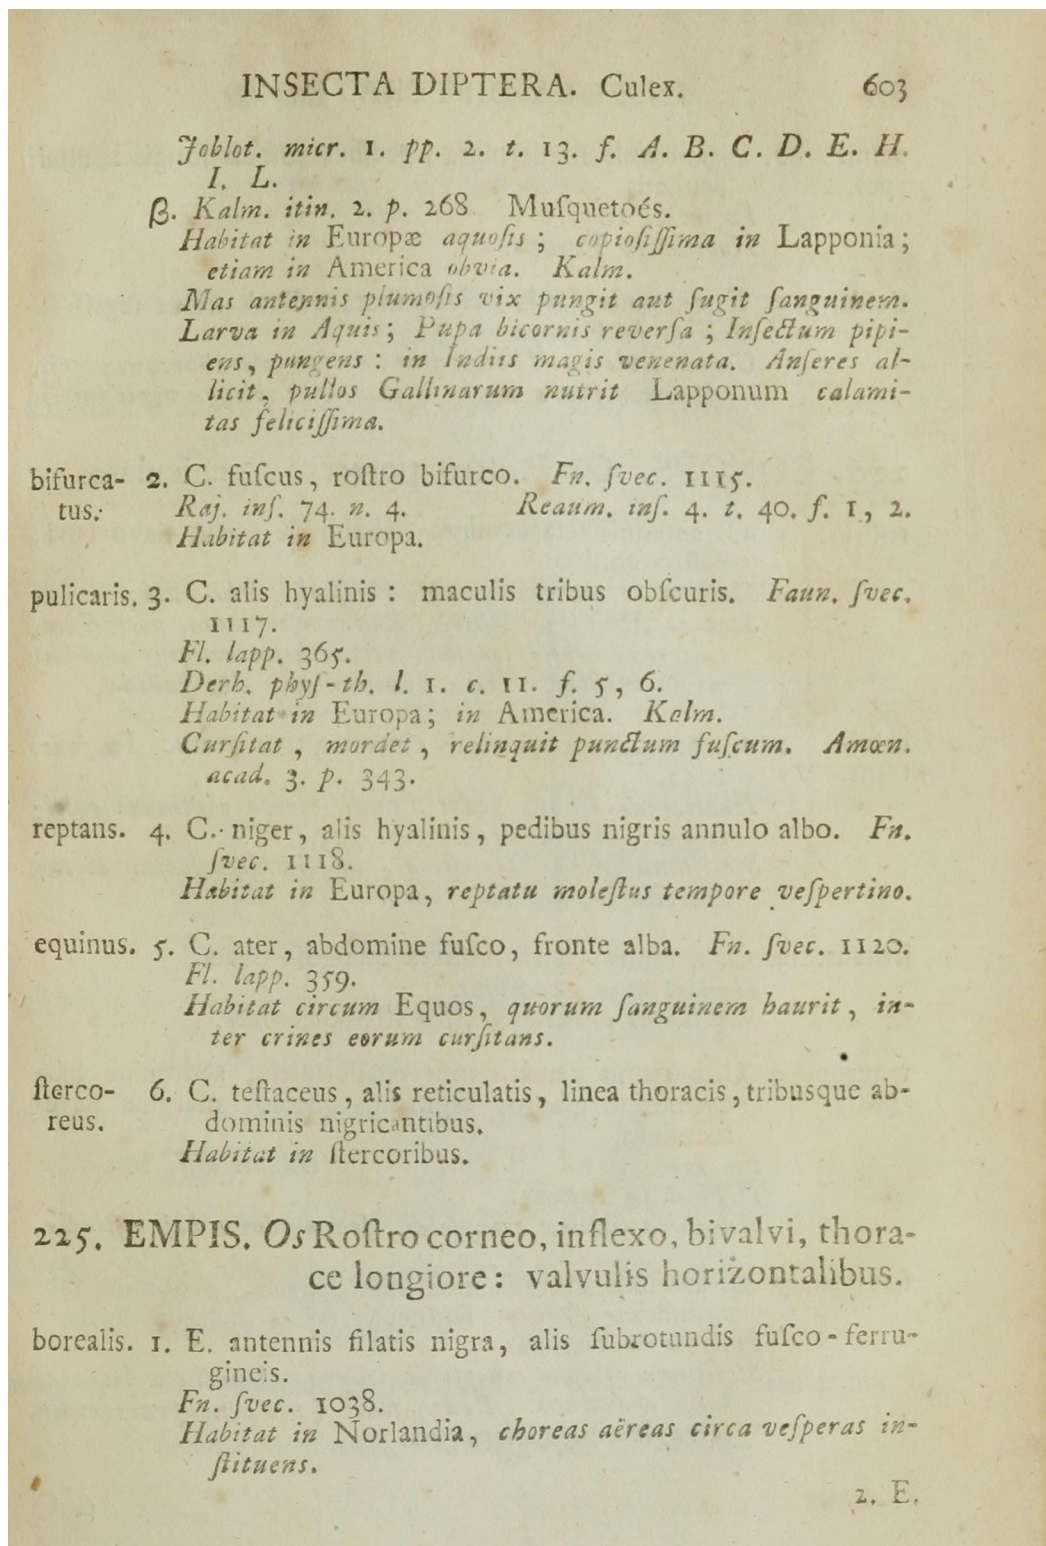 INSECTA DIPTERA. Culex. 603
Joblot. micr. 1. pp. 2. t. 13. f. A. B. C. D. E. H.
I. L.
β. Kalm. itin. 2. p. 268 Muſquetoés.
Habitat in Europæ aquoſis ; copioſiſſima in Lapponia ;
etiam in America obvia. Kalm.
Mas antennis plumoſis vix pungit aut ſugit ſanguinem.
Larva in Aquis ; Pupa bicornis reverſa ; Inſectum pipi-
ens, pungens : in Indiis magis venenata. Anſeres al-
licit, pullos Gallinarum nutrit Lapponum calami-
tas feliciſſima.
bifurca- 2. C. fuſcus, roſtro bifurco. Fn. ſvec. 1115.
tus. Raj. inſ. 74. n. 4. Reaum. inſ. 4. t. 40. f. 1, 2.
Habitat in Europa.
pulicaris. 3. C. alis hyalinis : maculis tribus obſcuris. Faun. ſvec.
1117.
Fl. lapp. 365.
Derh. phyſ-th. l. 1. c. 11. f. 5, 6.
Habitat in Europa; in America. Kalm.
Curſitat, mordet, relinquit punctum fuſcum. Amœn.
acad. 3. p. 343.
reptans. 4. C. niger, alis hyalinis, pedibus nigris annulo albo. Fn.
ſvec. 1118.
Habitat in Europa, reptatu moleſtus tempore veſpertino.
equinus. 5. C. ater, abdomine fuſco, fronte alba. Fn. ſvec. 1120.
Fl. lapp. 359.
Habitat circum Equos, quorum ſanguinem haurit, in-
ter crines eorum curſitans.
ſterco- 6. C. teſtaceus, alis reticulatis, linea thoracis, tribusque ab-
reus. dominis nigricantibus.
Habitat in ſtercoribus.
225. EMPIS. Os Roſtro corneo, inflexo, bivalvi, thora-
ce longiore : valvulis horizontalibus.
borealis. 1. E. antennis filatis nigra, alis ſubrotundis fuſco-ferru-
gineis.
Fn. ſvec. 1038.
Habitat in Norlandia, choreas aëreas circa veſperas in-
ſtituens.
2. E.